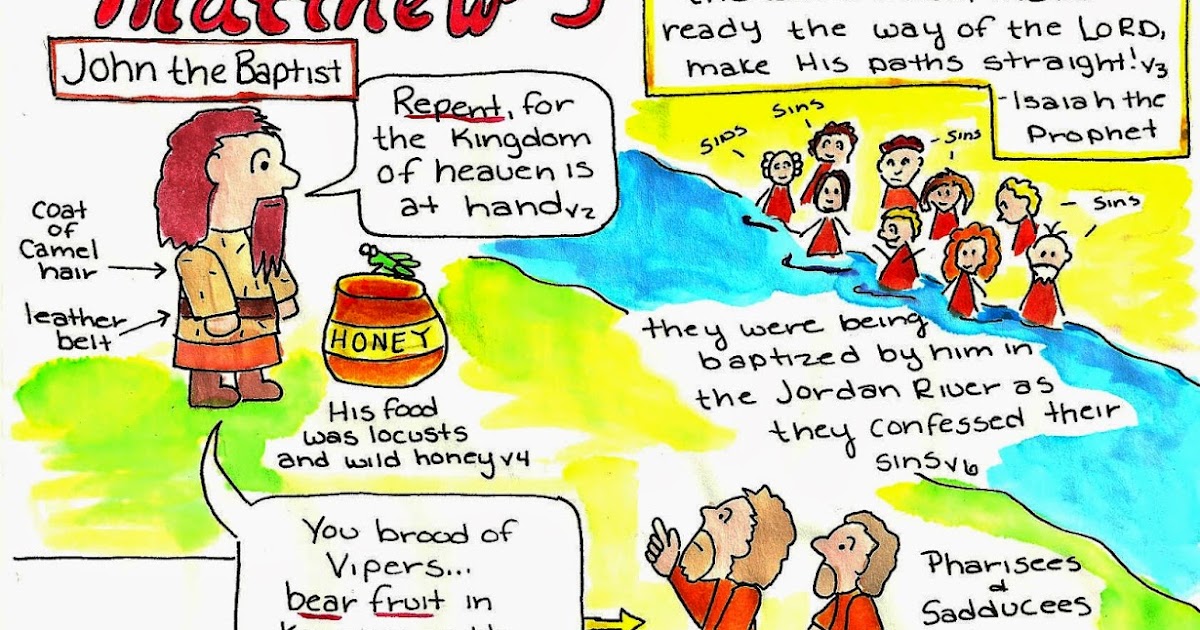 Matthew 3
ready the way of the LORD,
make His paths straight! v3
-Isaiah the
Prophet
John the Baptist
Repent, for
the Kingdom
of heaven is
at hand v2
Sins
Sins
-Sins
- Sins
coat
of
Camel
hair
leather
belt
HONEY
His food
was locusts
and wild honey v4
they were being
baptized by him in
the Jordan River as
they confessed their
sins v6
You brood of
Vipers...
bear fruit in
Pharisees
&
Sadducees